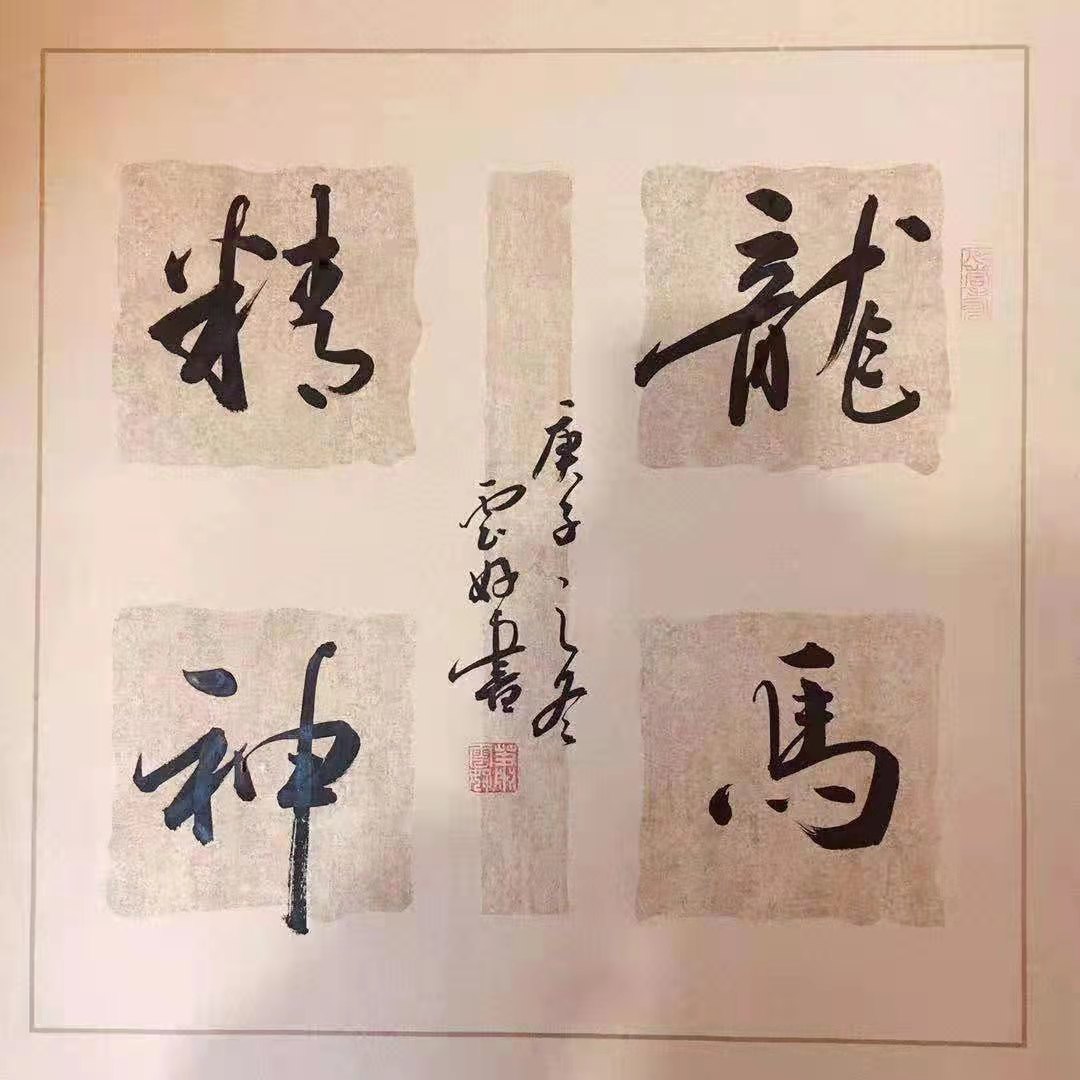 龍馬
精神
庚子、之冬
雲好書